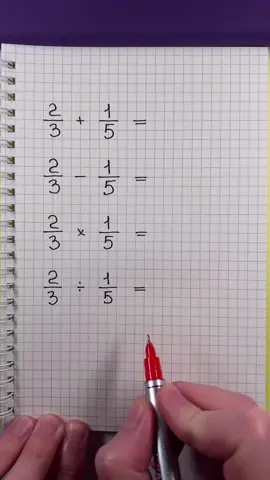 2/3 + 1/5 =
2/3 − 1/5 =
2/3 × 1/5 =
2/3 ÷ 1/5 =